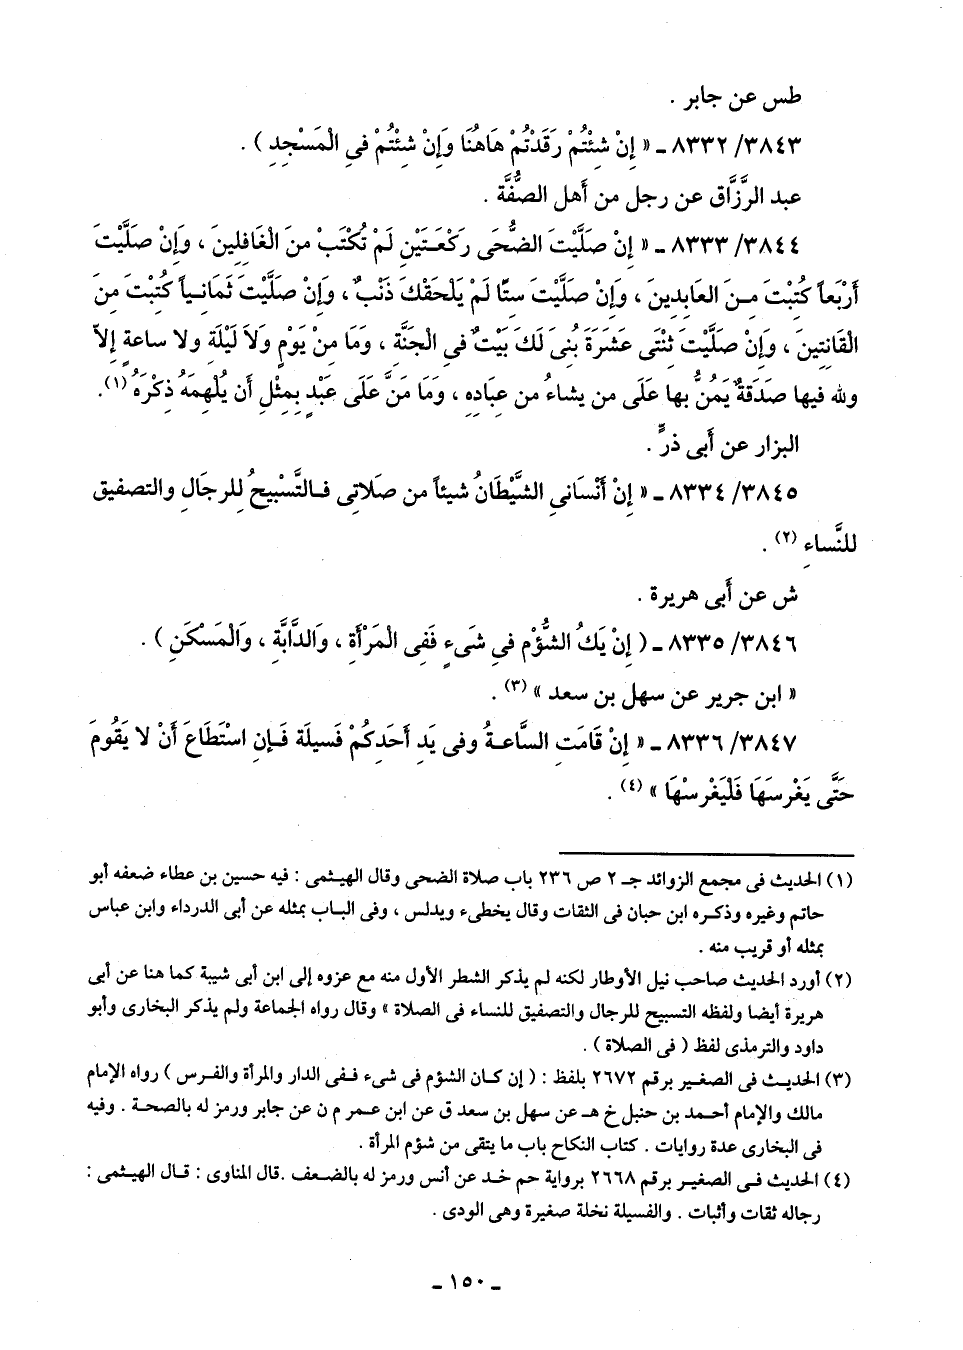 طس عن جابر .
٣٨٤٣/ ٨٣٣٢ ـ « إِنْ شِئْتُمْ رَقَدْتُمْ هَاهُنَا وَإِنْ شِئْتُمْ فِى الْمَسْجِدِ ) .
عبد الرَّزَّاق عن رجل من أَهل الصُّفَّة .
٣٨٤٤/ ٨٣٣٣ ـ « إِنْ صَلَّيْتَ الضُّحَى رَكْعَتَيْنِ لَمْ تُكْتَبْ مِنَ الْغَافِلِينَ ، وَإِنْ صَلَّيْتَ
أَرْبَعاً كُتِبْتَ مِنَ العَابِدِينَ ، وَإِنْ صَلَّيْتَ سِتًّا لَمْ يَلْحَقْكَ ذَنْبٌ ، وَإِنْ صَلَّيْتَ ثَمَانِياً كُتِبْتَ مِنَ
القَانِتِينَ ، وَإِنْ صَلَّيْتَ ثِنْتَى عَشَرَةَ بُنِىَ لَكَ بَيْتٌ فِى الْجَنَّةِ ، وَمَا مِنْ يَوْمٍ وَلاَ لَيْلَةٍ ولا ساعةٍ إِلاَّ
وللهِ فيها صَدَقَةٌ يَمُنُّ بها عَلَى من يشاءُ من عِبادِهِ ، وَمَا مَنَّ عَلَى عَبْدٍ بِمِثْلِ أَن يُلْهِمَهُ ذِكْرَهُ (١).
البزار عن أَبى ذرٍّ .
٣٨٤٥/ ٨٣٣٤ ـ « إِنْ أَنْسَانِى الشَّيْطَانُ شيئاً من صَلاتِى فـالتَّسْبِيحُ للرجَالِ والتصفيق
للنَّساءِ (٢) .
ش عن أَبى هريرة .
٣٨٤٦/ ٨٣٣٥ ـ ( إِنْ يَكُ الشُّؤْم فِى شَىءٍ فَفِى الْمَرْأَةِ ، وَالدَّابَّةِ ، وَالْمَسْكَنِ ) .
« ابن جرير عن سهل بن سعد » (٣) .
٣٨٤٧/ ٨٣٣٦ ـ « إِنْ قَامَتِ السَّاعـةُ وفى يَدِ أَحَدِكُمْ فَسيلَة فَـإِن اسْتَطَاعَ أَنْ لا يَقُومَ
حَتَّى يَغْرِسَهَا فَلْيَغْرِسْهَا » (٤) .
(١) الحديث فى مجمع الزوائد جـ ٢ ص ٢٣٦ باب صلاة الضحى وقال الهيثمى : فيه حسين بن عطاء ضعفه أبو
حاتم وغيره وذكره ابن حبان فى الثقات وقال يخطىء ويدلس ، وفى الباب بمثله عن أبى الدرداء وابن عباس
بمثله أو قريب منه .
(٢) أورد الحديث صاحب نيل الأوطار لكنه لم يذكر الشطر الأول منه مع عزوه إلى ابن أبى شيبة كما هنا عن أبى
هريرة أيضا ولفظه التسبيح للرجال والتصفيق للنساء فى الصلاة » وقال رواه الجماعة ولم يذكر البخارى وأبو
داود والترمذى لفظ ( فى الصلاة ) .
(٣) الحديث فى الصغير برقم ٢٦٧٢ بلفظ : ( إن كان الشؤم فى شىء فـفى الدار والمرأة والفرس ) رواه الإمام
مالك والإمام أحمد بن حنبل خ هـ عن سهل بن سعد ق عن ابن عمر م ن عن جابر ورمز له بالصحة . وفيه
فى البخارى عدة روايات . كتاب النكاح باب ما يتقى من شؤم المرأة .
(٤) الحديث فى الصغير برقم ٢٦٦٨ برواية حم خد عن أنس ورمز له بالضعف .قال المناوى : قال الهيثمى :
رجاله ثقات وأثبات . والفسيلة نخلة صغيرة وهى الودى .
ـ ١٥٠ ـ